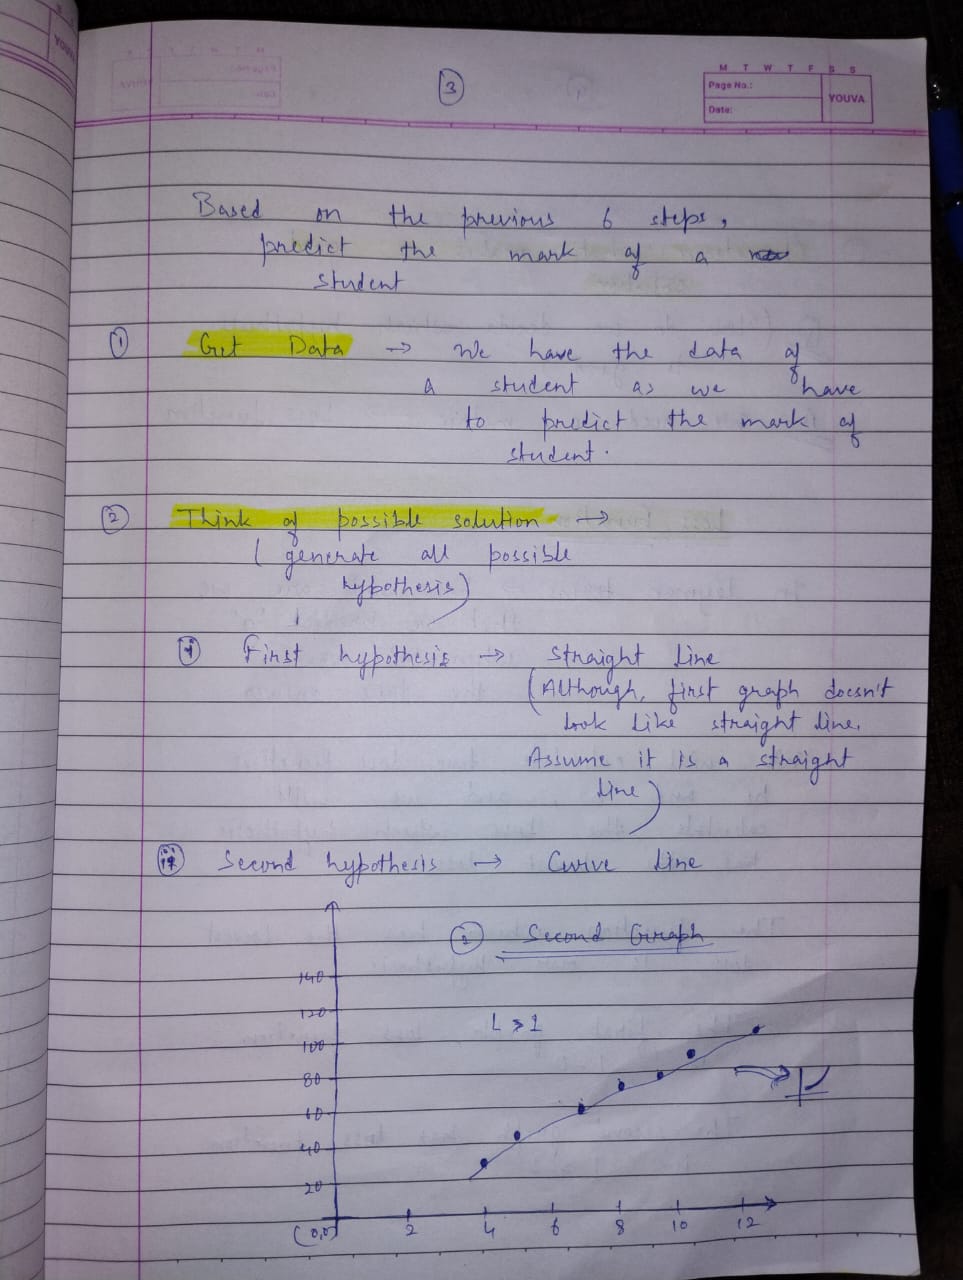 3
M T W T F S S
Page No.:
Date:
YOUVA
Based on the previous 6 steps,
predict the mark of a
student
① Get Data → We have the data of
a student as we have
to predict the mark of
student.
② Think of possible solution →
(generate all possible
hypothesis)
i First hypothesis → straight line
(Although, first graph doesn't
look like straight line.
Assume it is a straight
line)
ii Second hypothesis → Curve line
② Second Graph
140
120
L > 1
100
80
60
40
20
(0,0) 2 4 6 8 10 12